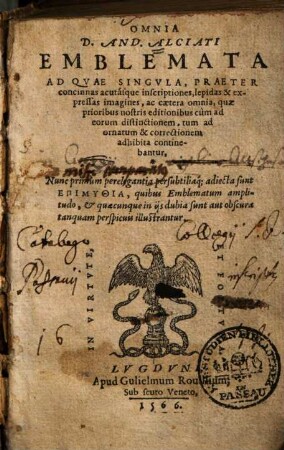 OMNIA
D. AND. ALCIATI
EMBLEMATA
AD QVAE SINGVLA, PRAETER
concinnas acutásque inscriptiones, lepidas & ex-
pressas imagines, ac cætera omnia, quæ
prioribus nostris editionibus cùm ad
eorum distinctionem, tum ad
ornatum & correctionem
adhibita contine-
bantur,
Nunc primùm perelegantia persubtiliaq; adiecta sunt
EPIMYTHIA, quibus Emblematum ampli-
tudo, & quæcunque in ijs dubia sunt aut obscura
tanquam perspicuis illustrantur.
Catalogo
Collegij
inscript
16
IN VIRTVTE,
LVGDVNI,
Apud Gulielmum Rouillium,
Sub scuto Veneto,
1566.
PASSAU